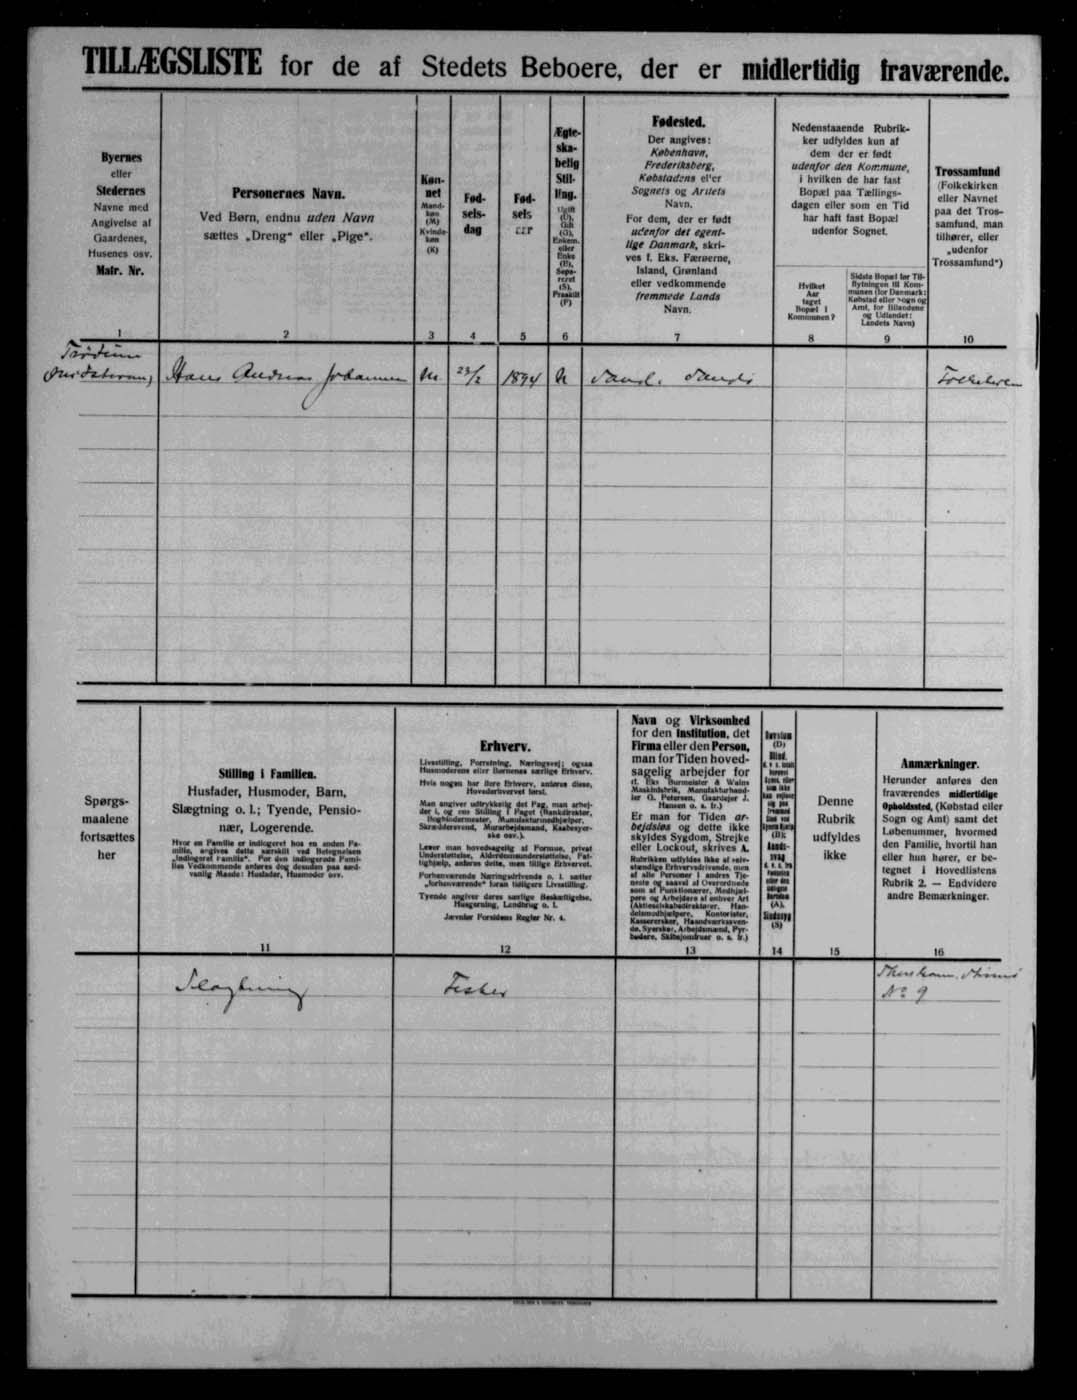 TILLÆGSLISTE for de af Stedets Beboere, der er midlertidig fraværende.
Byernes
eller
Stedernes
Navne med
Angivelse af
Gaardenes,
Husenes osv.
Matr. Nr.
1
Personernes Navn.
Ved Børn, endnu uden Navn
sættes „Dreng“ eller „Pige“.
2
Køn-
net
Mand-
køn
(M)
Kvinde-
køn
(K)
3
Fød-
sels-
dag
4
Fød-
sels
aar
5
Ægte-
ska-
belig
Stil-
ling.
Ugift
(U),
Gift
(G),
Enkem.
eller
Enke
(E),
Sepa-
reret
(S),
Fraskilt
(F)
6
Fødested.
Der angives:
København,
Frederiksberg,
Købstadens eller
Sognets og Amtets
Navn.
For dem, der er født
udenfor det egent-
lige Danmark, skri-
ves f. Eks. Færøerne,
Island, Grønland
eller vedkommende
fremmede Lands
Navn.
7
Nedenstaaende Rubrik-
ker udfyldes kun af
dem der er født
udenfor den Kommune,
i hvilken de har fast
Bopæl paa Tællings-
dagen eller som en Tid
har haft fast Bopæl
udenfor Sognet.
Hvilket
Aar
taget
Bopæl i
Kommunen?
8
Sidste Bopæl før Til-
flytningen til Kom-
munen (for Danmark:
Købstad eller Sogn og
Amt, for Bilandene
og Udlandet:
Landets Navn)
9
Trossamfund
(Folkekirken
eller Navnet
paa det Tros-
samfund, man
tilhører, eller
„udenfor
Trossamfund“)
10
Hans Andreas Johannesen M 23/2 1894 U Sand. Sandø Folkekirken
Spørgs-
maalene
fortsættes
her
Stilling i Familien.
Husfader, Husmoder, Barn,
Slægtning o. l.; Tyende, Pensio-
nær, Logerende.
Hvor en Familie er indlogeret hos en anden Fa-
milie, angives dette særskilt ved Betegnelsen
„indlogeret Familie“. For den indlogerede Fami-
lies Vedkommende anføres dog desuden paa sæd-
vanlig Maade: Husfader, Husmoder osv.
11
Erhverv.
Livsstilling, Forretning, Næringsvej; ogsaa
Husmoderens eller Børnenes særlige Erhverv.
Hvis nogen har flere Erhverv, anføres disse,
Hovederhvervet først.
Man angiver udtrykkelig det Fag, man arbej-
der i, og ens Stilling i Faget (Bankdirektør,
Bogbindermester, Manufakturmedhjælper,
Skræddersvend, Murarbejdsmand, Kaabesyer-
ske osv.).
Lever man hovedsagelig af Formue, privat
Understøttelse, Alderdomsunderstøttelse, Fat-
tighjælp, anføres dette, men tillige Erhvervet.
Forhenværende Næringsdrivende o. l. sætter
„forhenværende“ foran tidligere Livsstilling.
Tyende angiver deres særlige Beskæftigelse,
Husgerning, Landbrug o. l.
Jævnfør Forsidens Regler Nr. 4.
12
Navn og Virksomhed
for den Institution, det
Firma eller den Person,
man for Tiden hoved-
sagelig arbejder for
(f. Eks. Burmeister & Wains
Maskinfabrik, Manufakturhand-
ler G. Petersen, Gaardejer J.
Hansen o. s. fr.)
Er man for Tiden ar-
bejdsløs og dette ikke
skyldes Sygdom, Strejke
eller Lockout, skrives A.
Rubrikken udfyldes ikke af selv-
stændige Erhvervsdrivende, men
af alle Personer i andres Tje-
neste og saavel af Overordnede
som af Funktionærer, Medhjæl-
pere og Arbejdere af enhver Art
(Aktieselskabsdirektører, Han-
delsmedhjælpere, Kontorister,
Kasserersker, Haandværkssven-
de, Syersker, Arbejdsmænd, Fyr-
bødere, Skibsjomfruer o. s. fr.)
13
14
Denne
Rubrik
udfyldes
ikke
15
Anmærkninger.
Herunder anføres den
fraværendes midlertidige
Opholdssted, (Købstad eller
Sogn og Amt) samt det
Løbenummer, hvormed
den Familie, hvortil han
eller hun hører, er be-
tegnet i Hovedlistens
Rubrik 2. — Endvidere
andre Bemærkninger.
16
Slægtning Fisker Thorshavn, Strømø
No 9